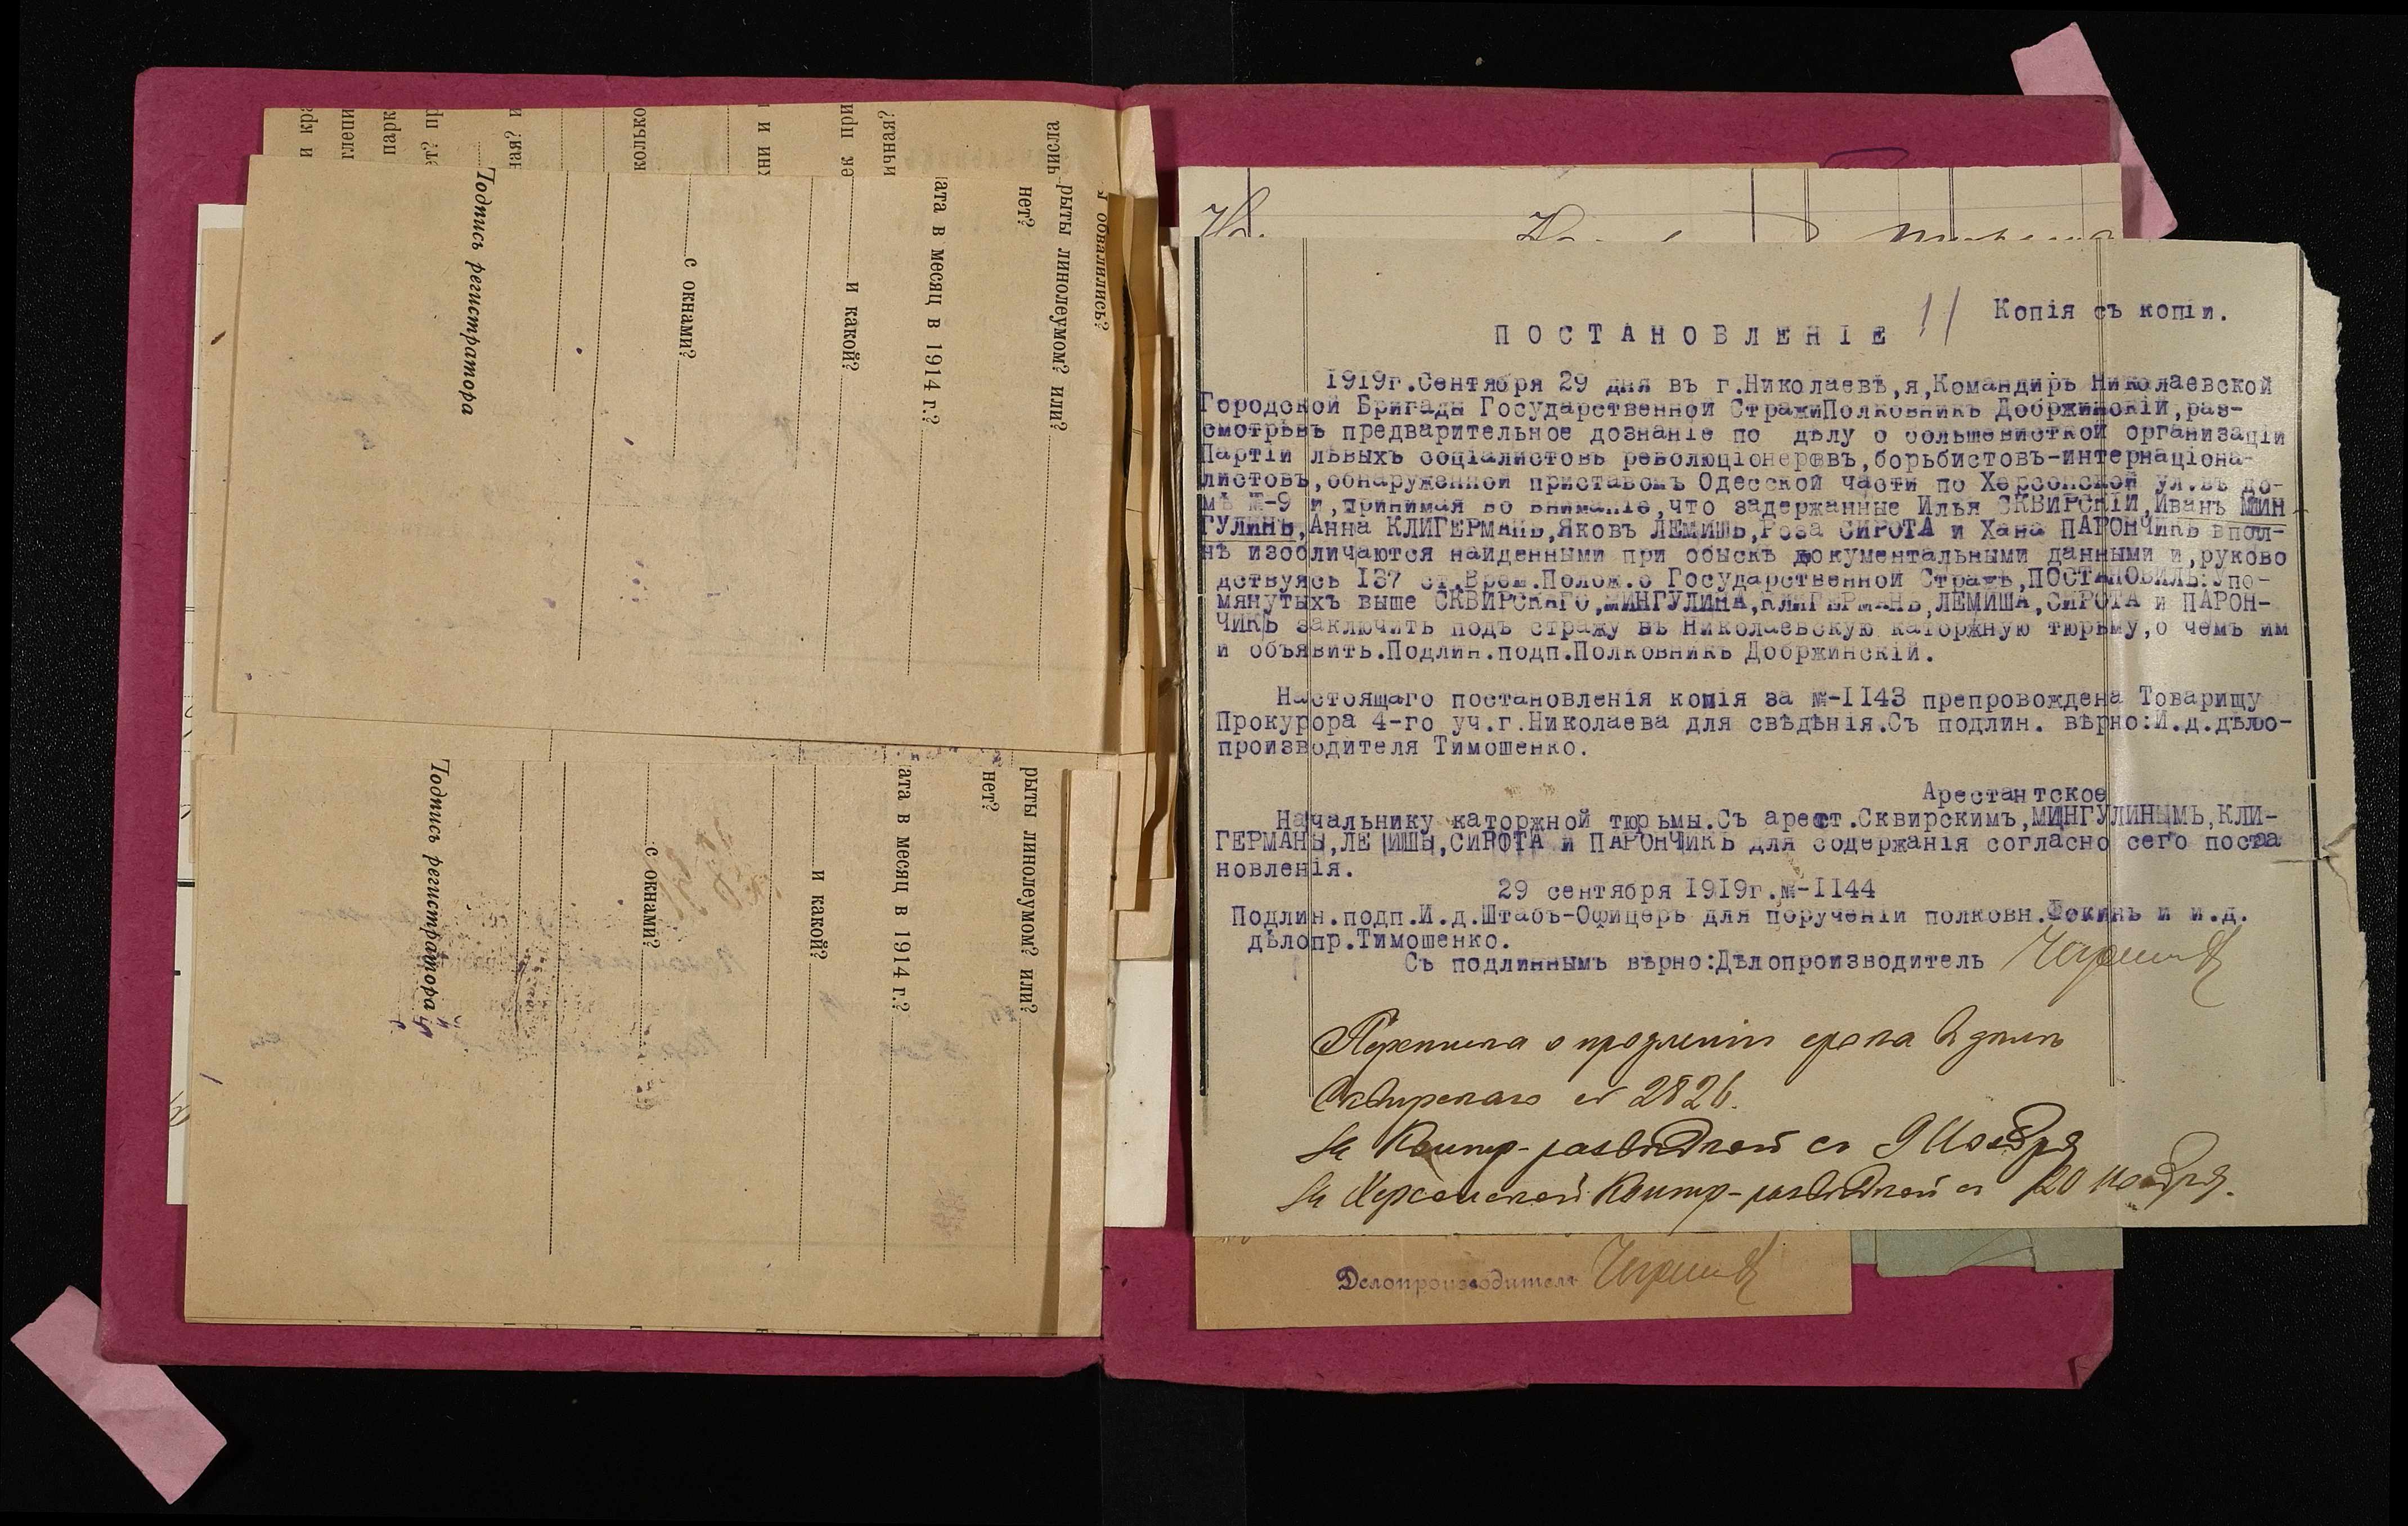 и кра
глепи
парк
ет? пр
ная? и
колько
хни и
е при
ичная?
числа
и обвалились?
рыты линолеумом? или?
нет?
ата в месяц в 1914 г.?
и какой?
с окнами?
Подпись регистратора
рыты линолеумом? или?
нет?
ата в месяц в 1914 г.?
и какой?
с окнами?
Подпись регистратора
11
Копія съ копіи.
ПОСТАНОВЛЕНІЕ
1919г.Сентября 29 дня въ г.Николаевѣ,я,Командиръ Николаевской
Городской Бригады Государственной СтражиПолковникъ Добржинскій,раз-
смотрѣвъ предварительное дознаніе по дѣлу о большевистской организаціи
Партіи лѣвыхъ соціалистовъ революціонеровъ,борьбистовъ-интернаціона-
листовъ,обнаруженной приставомъ Одесской части по Херсонской ул.въ до-
мѣ №-9 и,принимая во вниманіе,что задержанные Илья СКВИРСКІЙ,Иванъ МИН
ГУЛИНЪ,Анна КЛИГЕРМАНЪ,Яковъ ЛЕМИШЪ,Роза СИРОТА и Хана ПАРОНЧИКЪ впол-
нѣ изобличаются найденными при обыскѣ документальными данными и,руково
дствуясь 137 ст.Врем.Полож.о Государственной Стражѣ,ПОСТАНОВИЛЪ:Упо-
мянутыхъ выше СКВИРСКАГО,МИНГУЛИНА,КЛИГЕРМАНЪ,ЛЕМИША,СИРОТА и ПАРОН-
ЧИКЪ заключить подъ стражу въ Николаевскую каторжную тюрьму,о чемъ им
и объявить.Подлин.подп.Полковникъ Добржинскій.
Настоящаго постановленія копія за №-1143 препровождена Товарищу
Прокурора 4-го уч.г.Николаева для свѣдѣнія.Съ подлин. вѣрно:И.д.дѣло-
производителя Тимошенко.
Арестантское
Начальнику каторжной тюрьмы.Съ арест.Сквирскимъ,МИНГУЛИНЫМЪ,КЛИ-
ГЕРМАНЪ,ЛЕ ИШЪ,СИРОТА и ПАРОНЧИКЪ для содержанія согласно сего поста
новленія.
29 сентября 1919г.№-1144
Подлин.подп.И.д.Штабъ-Офицеръ для порученій полковн.Фокинъ и и.д.
дѣлопр.Тимошенко.
Съ подлиннымъ вѣрно:Дѣлопроизводитель
Переписка о продленіи срока въ дѣлѣ
Сквирскаго 2826.
За Контр-развѣдкой съ 9 Ноября
За Херсонской Контр-развѣдкой съ 20 ноября.
Делопроизводитель